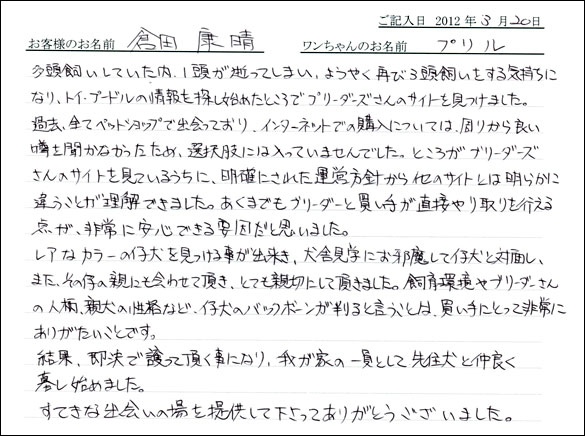 ご記入日 2012年3月20日
お客様のお名前 倉田 康晴 ワンちゃんのお名前 プリル
3頭飼いしていた内、1頭が逝ってしまい、ようやく再び3頭飼いをする気持ちに
なり、トイ・プードルの情報を探し始めたところでブリーダーズさんのサイトを見つけました。
過去、全てペットショップで出会っており、インターネットでの購入については、周りから良い
噂を聞かなかったため、選択肢には入っていませんでした。ところがブリーダーズ
さんのサイトを見ているうちに、明確にされた運営方針から他のサイトとは明らかに
違うことが理解できました。あくまでもブリーダーと買い手が直接やり取りを行える
点が、非常に安心できる要因だと思いました。
レアなカラーの仔犬を見つける事が出来き、犬舎見学にお邪魔して仔犬と対面し、
また、その仔の親にも会わせて頂き、とても親切にして頂きました。飼育環境やブリーダーさん
の人柄、親犬の性格など、仔犬のバックボーンが判ると言うことは、買い手にとって非常に
ありがたいことです。
結果、即決で譲って頂く事になり、我が家の一員として先住犬と仲良く
暮し始めました。
すてきな出会いの場を提供して下さってありがとうございました。